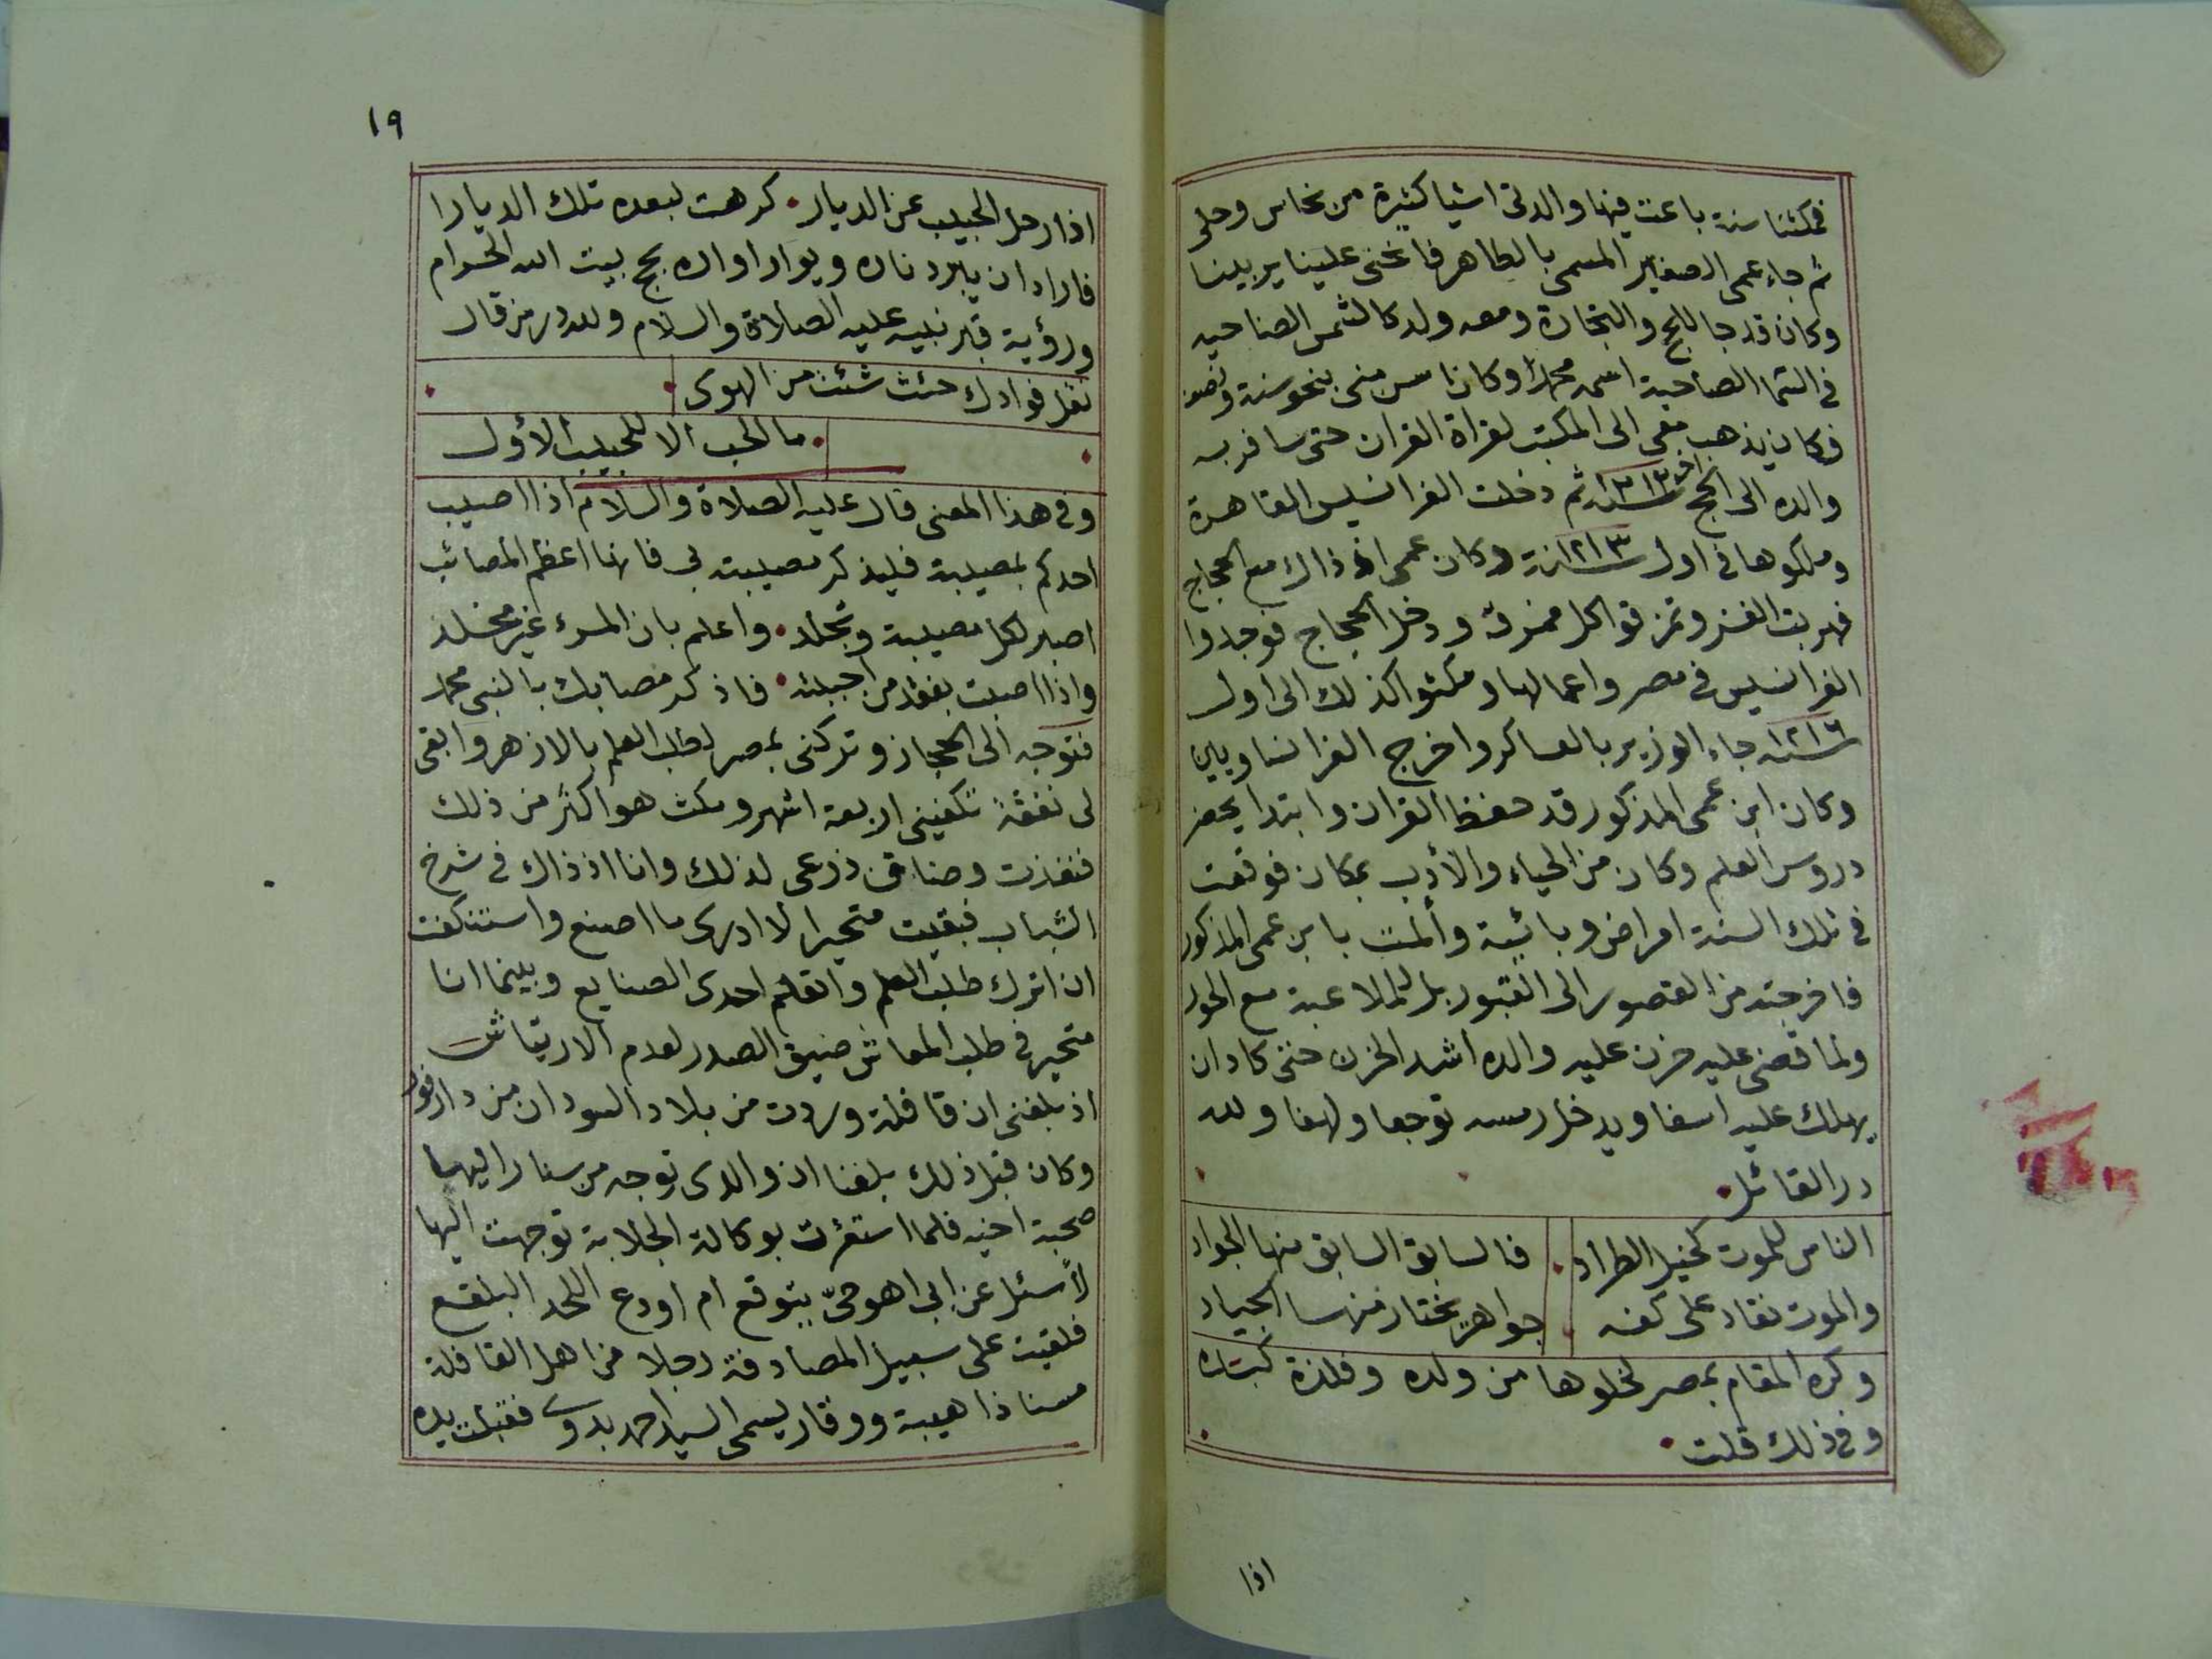 فمكثنا سنة باعت فيها والدتى اشيا كثيرة من نحاس وحلى
ثم جاء عمى الصغير المسمى بالطاهر فاغنى علينا يربينا
وكان قد جا للحج والتجارة ومعه ولد كالشمس الضاحيه
فى السما الصاحية اسمه محمدا وكان اسن منى بنحو سنة ونصف
فكان يذهب معى الى المكتب لقراة القران حتى سافر به
والده الى الحج سنة ثم دخلت الفرانسيس القاهرة
وملكوها فى اول سنة ١٢١٣ وكان عمى اذ ذاك مع الحجاج
فهربت الغز وتمزقوا كل ممزق ودخل الحجاج فوجدوا
الفرانسيس فى مصر واعمالها ومكثوا كذلك الى اول
سنة ١٢١٦ جاء الوزير بالعساكر واخرج الفرانساويين
وكان ابن عمى المذكور قد حفظ القران وابتدا يحضر
دروس العلم وكان من الحياء والأدب بمكان فوقعت
فى تلك السنة امراض وبائية وألمت بابن عمى المذكور
فاخرجته من القصور الى القبور بل للملاعبة مع الحور
ولما قضى عليه حزن عليه والده اشد الحزن حتى كاد ان
يهلك عليه اسفا ويدخل رمسه توجعا ولهفا ولله
در القائل
الناس للموت كخيل الطراد . فالسابق السابق منها الجواد
والموت نقاد على كفه . جواهر يختار منها الجياد
وكره المقام بمصر لخلوها من ولده وفلذة كبده
وفى ذلك قلت
اذا
١٩
اذا رحل الحبيب عن الديار . كرهت لبعده تلك الديارا
فاراد ان يبرد ناره ويوار اواره بحج بيت الله الحرام
ورؤية قبر نبيه عليه الصلاة والسلام ولله در من قال
نقل فوادك حيث شئت من الهوى
ما الحب الا للحبيب الأول
وفى هذا المعنى قال عليه الصلاة والسلام اذا اصيب
احدكم بمصيبة فليذكر مصيبته بى فانها اعظم المصائب
اصبر لكل مصيبة وتجلد . واعلم بان المرء غير مخلد
واذا اصبت بفقد من احببته . فاذكر مصابك بالنبى محمد
فتوجه الى الحجاز وتركنى بمصر لطلب العلم بالازهر وابقى
لى نفقة تكفينى اربعة اشهر ومكث هو اكثر من ذلك
فنفذت وضاق ذرعى لذلك وانا اذ ذاك فى شرخ
الشباب فبقيت متحيرا لا ادرى ما اصنع واستنكفت
ان اترك طلب العلم واتعلم احدى الصنايع وبينما انا
متحير فى طلب المعاش ضيق الصدر لعدم الارتياش
اذ بلغنى ان قافلة وردت من بلاد السودان من دارفور
وكان قبل ذلك بلغنا ان والدى توجه من سنار اليها
صحبة اخيه فلما استقرت بوكالة الجلابة توجهت اليها
لأسئل عن ابى اهو حىّ يتوقع ام اودع اللحد البلقع
فلقيت على سبيل المصادفة رجلا من اهل القافلة
مسنا ذا هيبة ووقار يسمى السيد احمد بدوى فقبلت يده